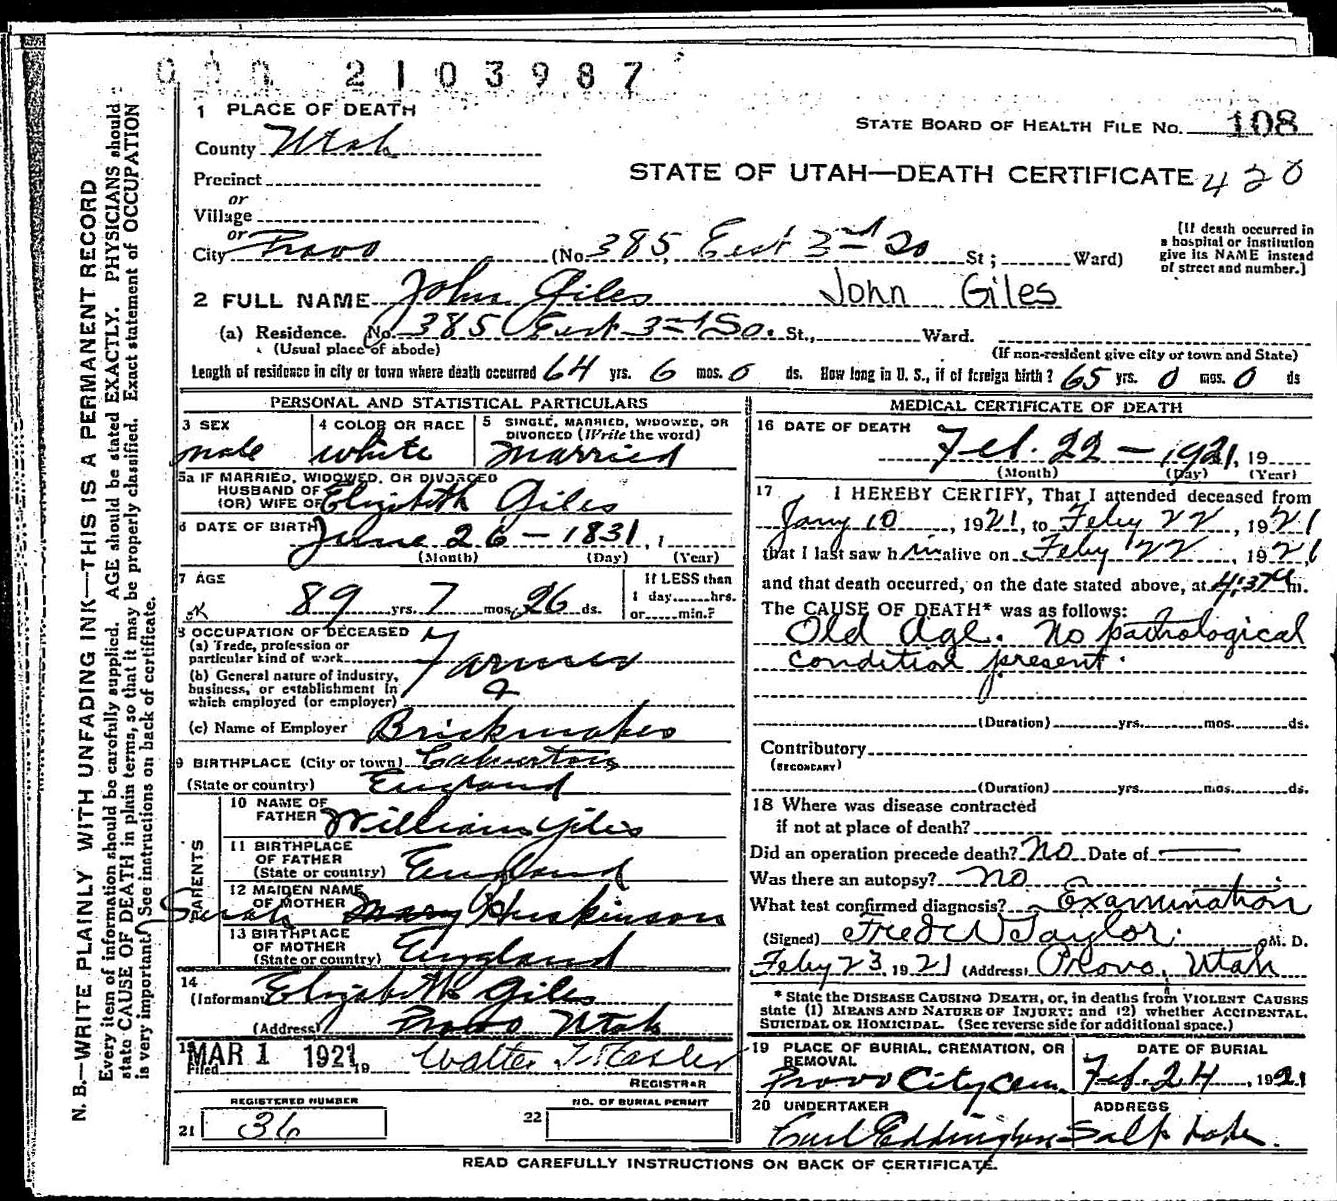 000 2103987
1 PLACE OF DEATH
STATE BOARD OF HEALTH FILE NO. 108
County Utah
STATE OF UTAH—DEATH CERTIFICATE 420
Precinct
or
Village
or
City Provo (No. 385, East 3rd So St; Ward)
[If death occurred in
a hospital or institution
give its NAME instead
of street and number.]
2 FULL NAME John Giles John Giles
(a) Residence. No. 385 East 3rd So. St., Ward.
(Usual place of abode) (If non-resident give city or town and State)
Length of residence in city or town where death occurred 64 yrs. 6 mos. 0 ds. How long in U. S., if of foreign birth? 65 yrs. 0 mos. 0 ds
PERSONAL AND STATISTICAL PARTICULARS
3 SEX male
4 COLOR OR RACE white
5 SINGLE, MARRIED, WIDOWED, OR DIVORCED (Write the word) Married
5a IF MARRIED, WIDOWED, OR DIVORCED
HUSBAND OF
(OR) WIFE OF Elizabeth Giles
6 DATE OF BIRTH June 26 - 1831, 1
(Month) (Day) (Year)
7 AGE 89 yrs. 7 mos. 26 ds.
If LESS than
1 day hrs.
or min.?
8 OCCUPATION OF DECEASED
(a) Trade, profession or
particular kind of work Farmer
(b) General nature of industry,
business, or establishment in
which employed (or employer) &
(c) Name of Employer Brickmaker
9 BIRTHPLACE (City or town) Calverton
(State or country) England
PARENTS
10 NAME OF
FATHER William Giles
11 BIRTHPLACE
OF FATHER
(State or country) England
12 MAIDEN NAME
OF MOTHER Sarah Mary Huskinson
13 BIRTHPLACE
OF MOTHER
(State or country) England
14
(Informant) Elizabeth Giles
(Address) Provo Utah
15
Filed MAR 1 1921, 19 Walter T. Hasler
REGISTRAR
REGISTERED NUMBER
21 36
NO. OF BURIAL PERMIT
22
MEDICAL CERTIFICATE OF DEATH
16 DATE OF DEATH
Feb. 22 - 1921, 19
(Month) (Day) (Year)
17 I HEREBY CERTIFY, That I attended deceased from
Jany 10, 1921, to Feby 22, 1921
that I last saw him alive on Feby 22, 1921
and that death occurred, on the date stated above, at 4:37 m.
The CAUSE OF DEATH* was as follows:
Old Age. No pathological
condition present.
(Duration) yrs. mos. ds.
Contributory
(SECONDARY)
(Duration) yrs. mos. ds.
18 Where was disease contracted
if not at place of death?
Did an operation precede death? No Date of
Was there an autopsy? no
What test confirmed diagnosis? Examination
(Signed) Fred W Taylor. M. D.
Feby 23, 1921 (Address) Provo, Utah
* State the DISEASE CAUSING DEATH, or, in deaths from VIOLENT CAUSES
state (1) MEANS AND NATURE OF INJURY; and (2) whether ACCIDENTAL,
SUICIDAL OR HOMICIDAL. (See reverse side for additional space.)
19 PLACE OF BURIAL, CREMATION, OR
REMOVAL
Provo City Cem
DATE OF BURIAL
Feb. 24, 1921
20 UNDERTAKER ADDRESS
Carl Eddington Salt Lake.
READ CAREFULLY INSTRUCTIONS ON BACK OF CERTIFICATE.
N. B.—WRITE PLAINLY WITH UNFADING INK—THIS IS A PERMANENT RECORD
Every item of information should be carefully supplied. AGE should be stated EXACTLY. PHYSICIANS should
state CAUSE OF DEATH in plain terms, so that it may be properly classified. Exact statement of OCCUPATION
is very important. See instructions on back of certificate.